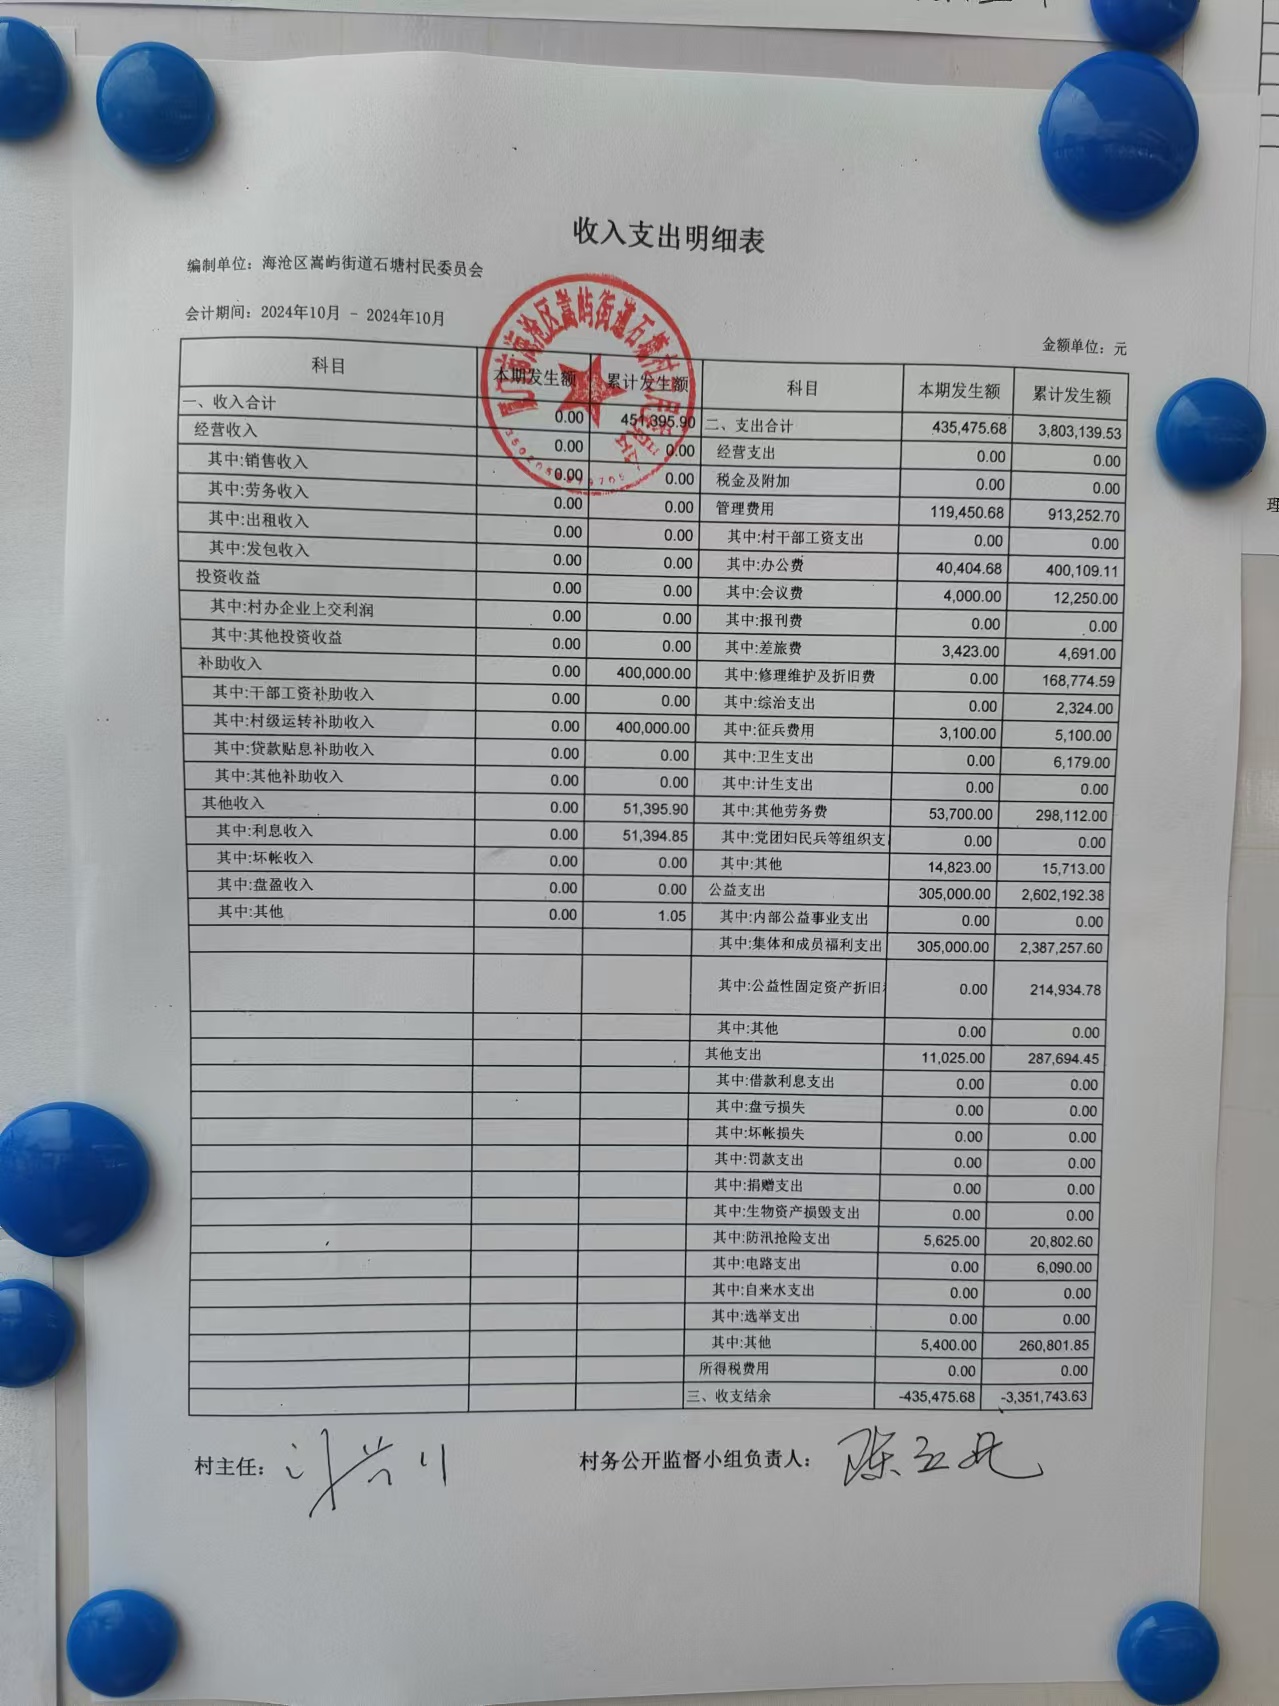 收入支出明细表
编制单位：海沧区嵩屿街道石塘村民委员会
会计期间：2024年10月 - 2024年10月
金额单位：元
科目 本期发生额 累计发生额 科目 本期发生额 累计发生额
一、收入合计 0.00 451,395.90 二、支出合计 435,475.68 3,803,139.53
经营收入 0.00 0.00 经营支出 0.00 0.00
其中:销售收入 0.00 0.00 税金及附加 0.00 0.00
其中:劳务收入 0.00 0.00 管理费用 119,450.68 913,252.70
其中:出租收入 0.00 0.00 其中:村干部工资支出 0.00 0.00
其中:发包收入 0.00 0.00 其中:办公费 40,404.68 400,109.11
投资收益 0.00 0.00 其中:会议费 4,000.00 12,250.00
其中:村办企业上交利润 0.00 0.00 其中:报刊费 0.00 0.00
其中:其他投资收益 0.00 0.00 其中:差旅费 3,423.00 4,691.00
补助收入 0.00 400,000.00 其中:修理维护及折旧费 0.00 168,774.59
其中:干部工资补助收入 0.00 0.00 其中:综治支出 0.00 2,324.00
其中:村级运转补助收入 0.00 400,000.00 其中:征兵费用 3,100.00 5,100.00
其中:贷款贴息补助收入 0.00 0.00 其中:卫生支出 0.00 6,179.00
其中:其他补助收入 0.00 0.00 其中:计生支出 0.00 0.00
其他收入 0.00 51,395.90 其中:其他劳务费 53,700.00 298,112.00
其中:利息收入 0.00 51,394.85 其中:党团妇民兵等组织支 0.00 0.00
其中:坏帐收入 0.00 0.00 其中:其他 14,823.00 15,713.00
其中:盘盈收入 0.00 0.00 公益支出 305,000.00 2,602,192.38
其中:其他 0.00 1.05 其中:内部公益事业支出 0.00 0.00
其中:集体和成员福利支出 305,000.00 2,387,257.60
其中:公益性固定资产折旧 0.00 214,934.78
其中:其他 0.00 0.00
其他支出 11,025.00 287,694.45
其中:借款利息支出 0.00 0.00
其中:盘亏损失 0.00 0.00
其中:坏帐损失 0.00 0.00
其中:罚款支出 0.00 0.00
其中:捐赠支出 0.00 0.00
其中:生物资产损毁支出 0.00 0.00
其中:防汛抢险支出 5,625.00 20,802.60
其中:电路支出 0.00 6,090.00
其中:自来水支出 0.00 0.00
其中:选举支出 0.00 0.00
其中:其他 5,400.00 260,801.85
所得税费用 0.00 0.00
三、收支结余 -435,475.68 -3,351,743.63
村主任： 村务公开监督小组负责人：